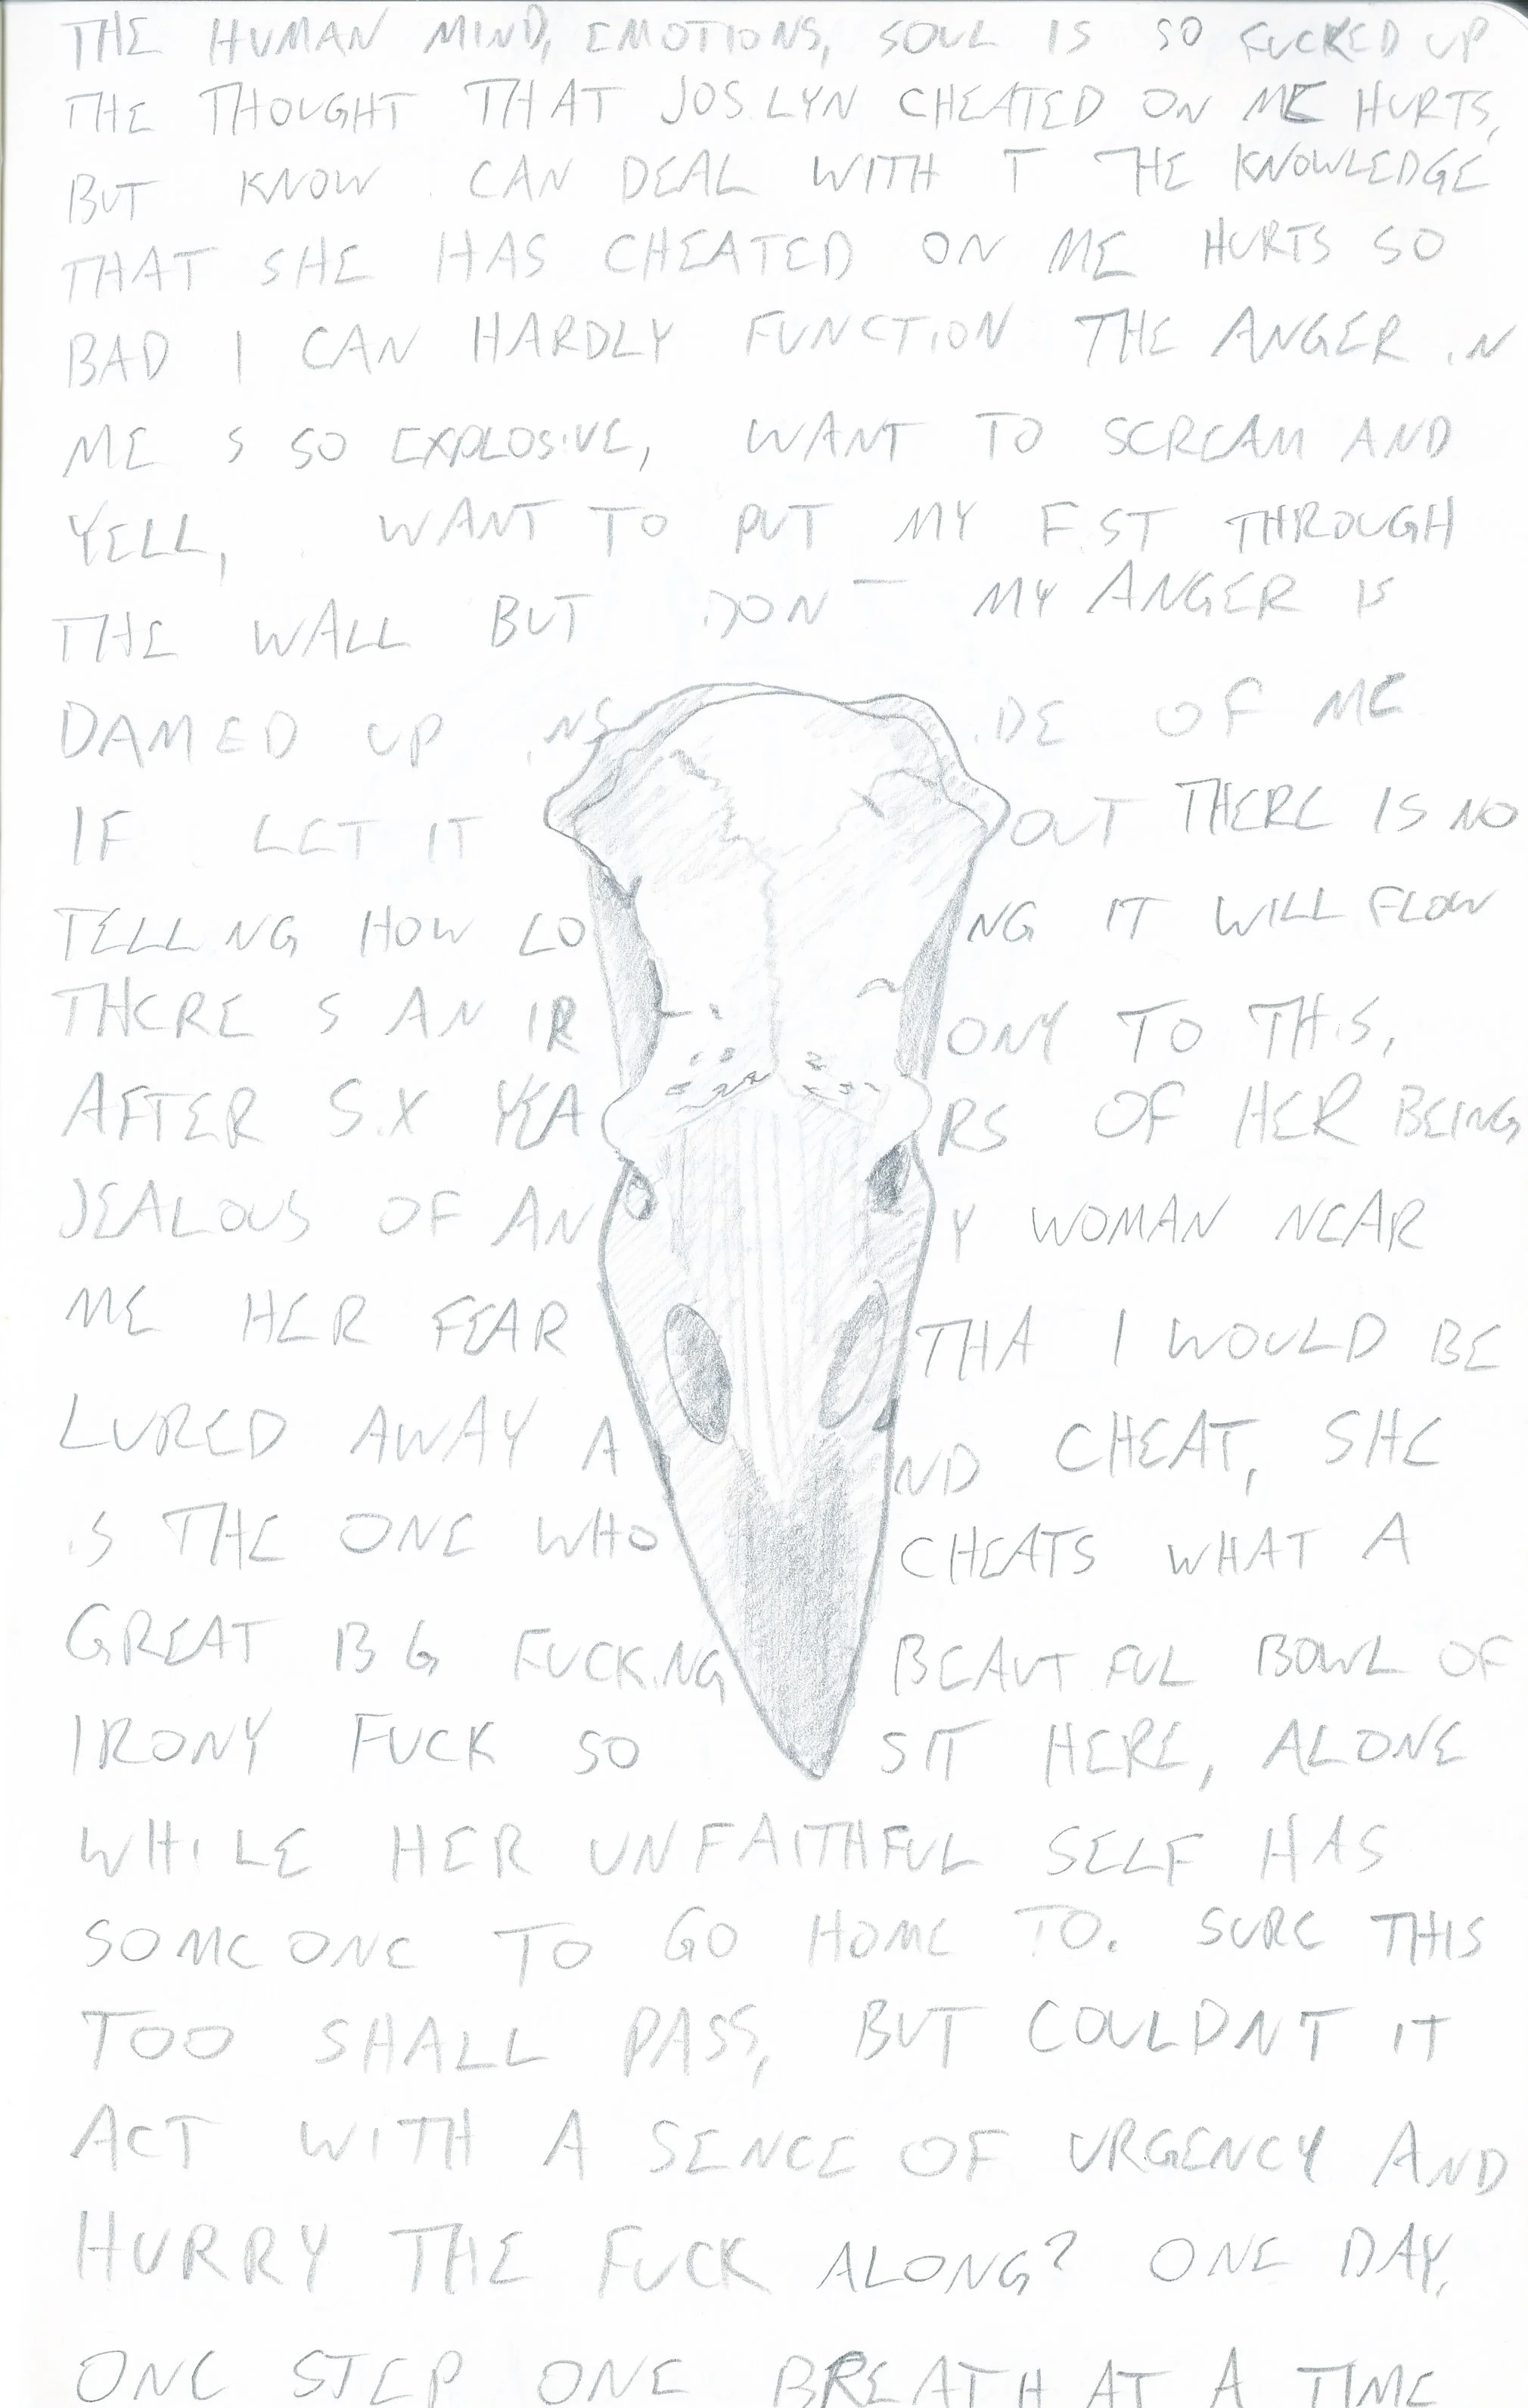 THE HUMAN MIND, EMOTIONS, SOUL IS SO FUCKED UP
THE THOUGHT THAT JOSLYN CHEATED ON ME HURTS,
BUT KNOW CAN DEAL WITH T THE KNOWLEDGE
THAT SHE HAS CHEATED ON ME HURTS SO
BAD I CAN HARDLY FUNCTION THE ANGER IN
ME S SO EXPLOSIVE, WANT TO SCREAM AND
YELL, WANT TO PUT MY FIST THROUGH
THE WALL BUT DON MY ANGER IS
DAMED UP INSIDE OF ME
IF LET IT OUT THERE IS NO
TELLING HOW LONG IT WILL FLOW
THERE S AN IRONY TO THIS,
AFTER SIX YEARS OF HER BEING
JEALOUS OF ANY WOMAN NEAR
ME HER FEAR THA I WOULD BE
LURED AWAY AND CHEAT, SHE
IS THE ONE WHO CHEATS WHAT A
GREAT B G FUCKING BEAUT FUL BOWL OF
IRONY FUCK SO SIT HERE, ALONE
WHILE HER UNFAITHFUL SELF HAS
SOMEONE TO GO HOME TO. SURE THIS
TOO SHALL PASS, BUT COULDNT IT
ACT WITH A SENCE OF URGENCY AND
HURRY THE FUCK ALONG? ONE DAY,
ONE STEP ONE BREATH AT A TIME